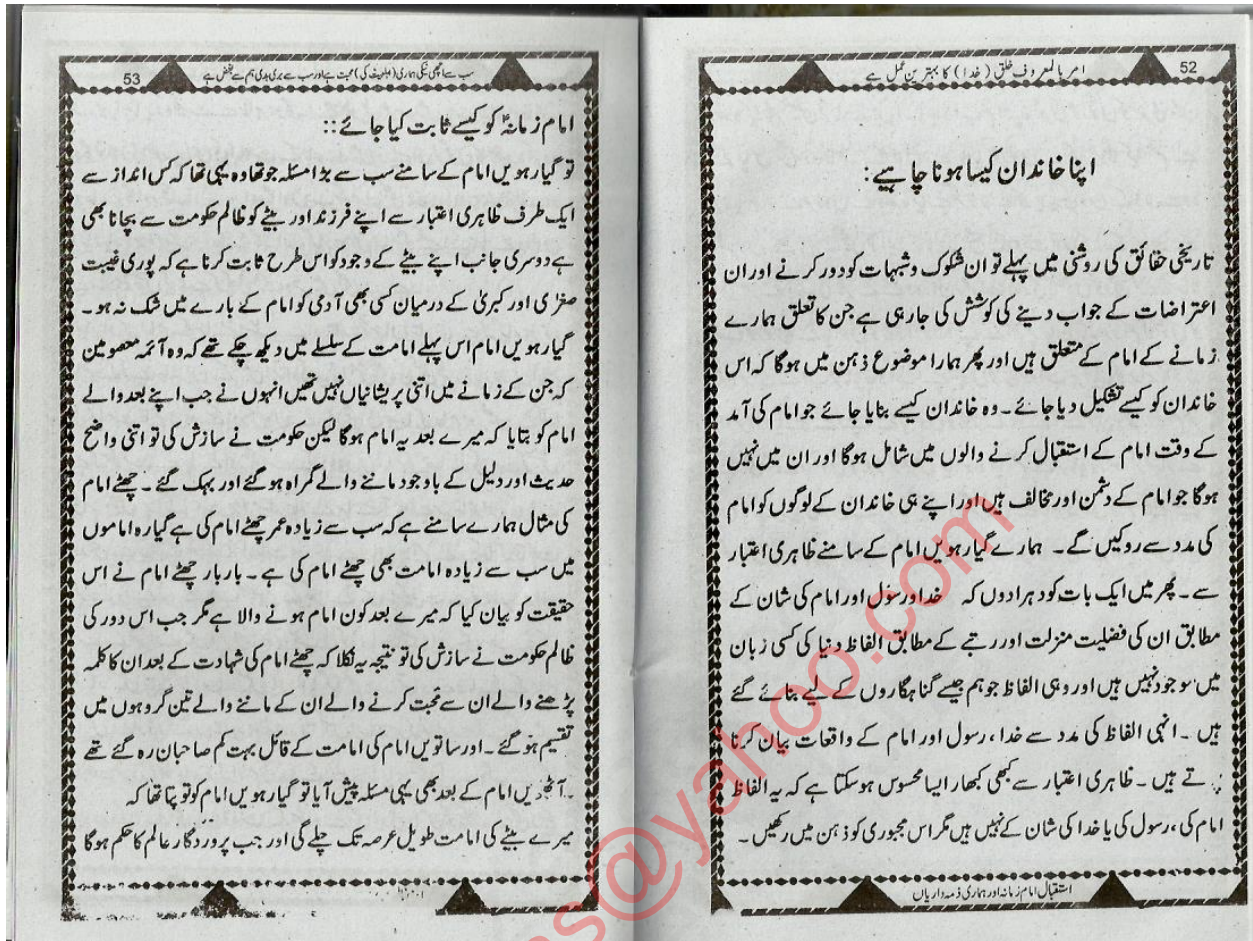 52
امر بالمعروف خلق (خدا) کا بہترین عمل ہے
اپنا خاندان کیسا ہونا چاہیے:
تاریخی حقائق کی روشنی میں پہلے تو ان شکوک وشبہات کو دور کرنے اور ان
اعتراضات کے جواب دینے کی کوشش کی جارہی ہے جن کا تعلق ہمارے
زمانے کے امام کے متعلق ہیں اور پھر ہمارا موضوع ذہن میں ہوگا کہ اس
خاندان کو کیسے تشکیل دیا جائے۔ وہ خاندان کیسے بنایا جائے جو امام کی آمد
کے وقت امام کے استقبال کرنے والوں میں شامل ہوگا اور ان میں نہیں
ہوگا جو امام کے دشمن اور مخالف ہیں اور اپنے ہی خاندان کے لوگوں کو امام
کی مدد سے روکیں گے۔ ہمارے گیارہویں امام کے سامنے ظاہری اعتبار
سے۔ پھر میں ایک بات کو دہرادوں کہ خدا ورسول اور امام کی شان کے
مطابق ان کی فضلیت منزلت اور رتبے کے مطابق الفاظ دنیا کی کسی زبان
میں موجود نہیں ہیں اور وہی الفاظ جو ہم جیسے گناہگاروں کے لیے بنائے گئے
ہیں۔ انہی الفاظ کی مدد سے خدا، رسول اور امام کے واقعات بیان کرنا
پڑتے ہیں۔ ظاہری اعتبار سے کبھی کبھار ایسا محسوس ہوسکتا ہے کہ یہ الفاظ
امام کی، رسول کی یا خدا کی شان کے نہیں ہیں مگر اس مجبوری کو ذہن میں رکھیں۔
استقبال امام زمانہ اور ہماری ذمہ داریاں
سب سے اچھی نیکی ہماری (اہلبیت کی) محبت ہے اور سب سے بری بدی ہم سے بغض ہے
53
امام زمانہؑ کو کیسے ثابت کیا جائے::
تو گیارہویں امام کے سامنے سب سے بڑا مسئلہ جو تھا وہ یہی تھا کہ کس انداز سے
ایک طرف ظاہری اعتبار سے اپنے فرزند اور بیٹے کو ظالم حکومت سے بچانا بھی
ہے دوسری جانب اپنے بیٹے کے وجود کو اس طرح ثابت کرنا ہے کہ پوری غیبت
صغرٰی اور کبریٰ کے درمیان کسی بھی آدمی کو امام کے بارے میں شک نہ ہو۔
گیارہویں امام اس پہلے امامت کے سلسلے میں دیکھ چکے تھے کہ وہ آئمہ معصومین
کہ جن کے زمانے میں اتنی پریشانیاں نہیں تھیں انہوں نے جب اپنے بعد والے
امام کو بتایا کہ میرے بعد یہ امام ہوگا لیکن حکومت نے سازش کی تو اتنی واضح
حدیث اور دلیل کے باوجود ماننے والے گمراہ ہوگئے اور بہک گئے۔ چھٹے امام
کی مثال ہمارے سامنے ہے کہ سب سے زیادہ عمر چھٹے امام کی ہے گیارہ اماموں
میں سب سے زیادہ امامت بھی چھٹے امام کی ہے۔ باربار چھٹے امام نے اس
حقیقت کو بیان کیا کہ میرے بعد کون امام ہونے والا ہے مگر جب اس دور کی
ظالم حکومت نے سازش کی تو نتیجہ یہ نکلا کہ چھٹے امام کی شہادت کے بعد ان کا کلمہ
پڑھنے والے ان سے محبت کرنے والے ان کے ماننے والے تین گروہوں میں
تقسیم ہوگئے۔ اور ساتویں امام کی امامت کے قائل بہت کم صاحبان رہ گئے تھے
۔ آٹھویں امام کے بعد بھی یہی مسئلہ پیش آیا تو گیارہویں امام کو تو پتا تھا کہ
میرے بیٹے کی امامت طویل عرصہ تک چلے گی اور جب پروردگار عالم کا حکم ہوگا
s@yahoo.com